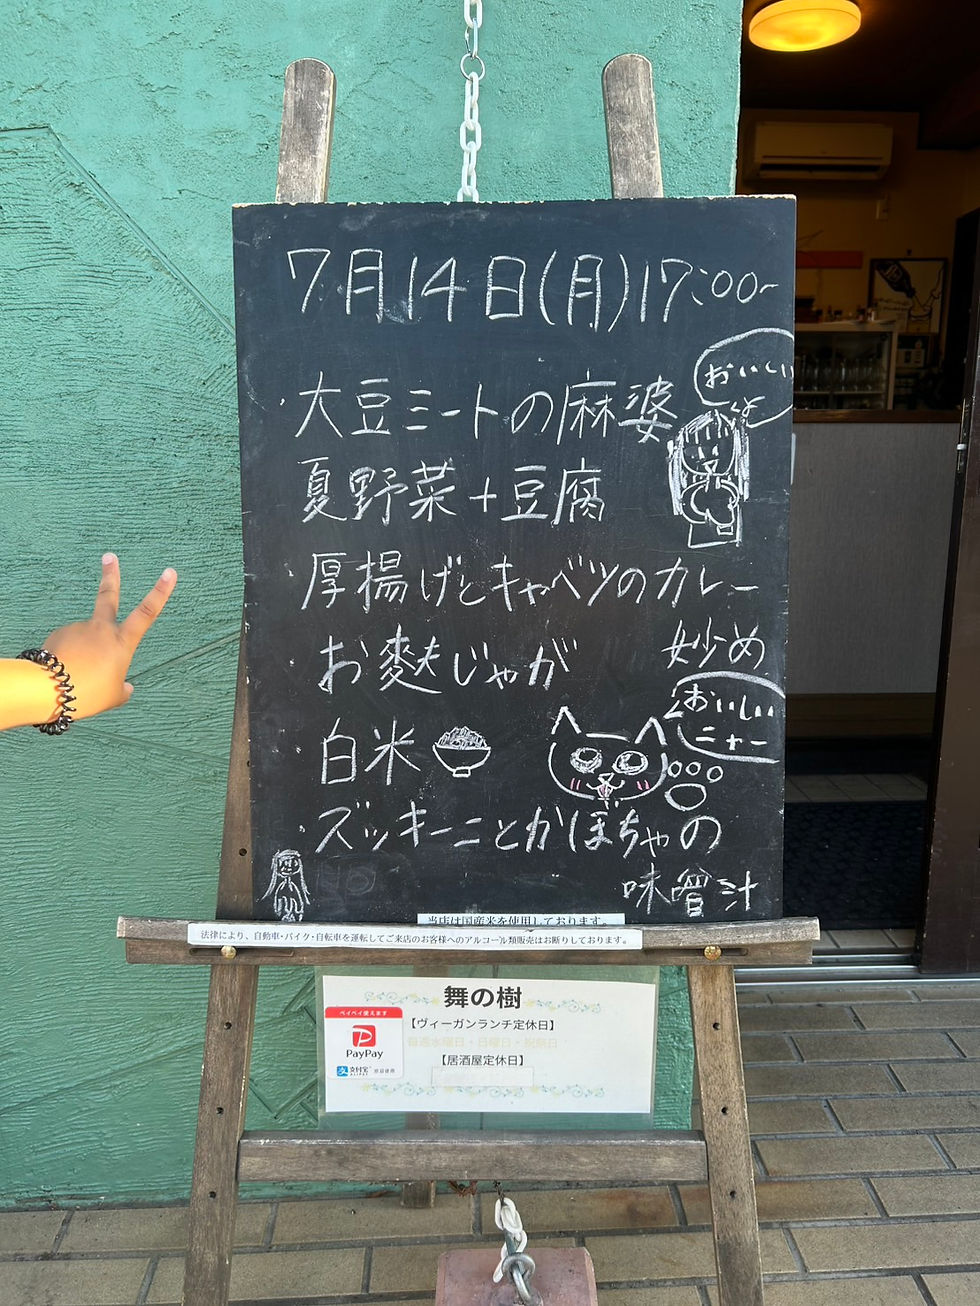 7月14日(月)17:00~
おいしいよ
・大豆ミートの麻婆
夏野菜+豆腐
・厚揚げとキャベツのカレー
炒め
お麩じゃが
おいしい
ニャー
白米
・ズッキーニとかぼちゃの
味噌汁
当店は国産米を使用しております。
法律により、自動車・バイク・自転車を運転してご来店のお客様へのアルコール類販売はお断りしております。
舞の樹
ペイペイ使えます
PayPay
支付宝
ALIPAY
【ヴィーガンランチ定休日】
毎週水曜日・日曜日・祝祭日
【居酒屋定休日】